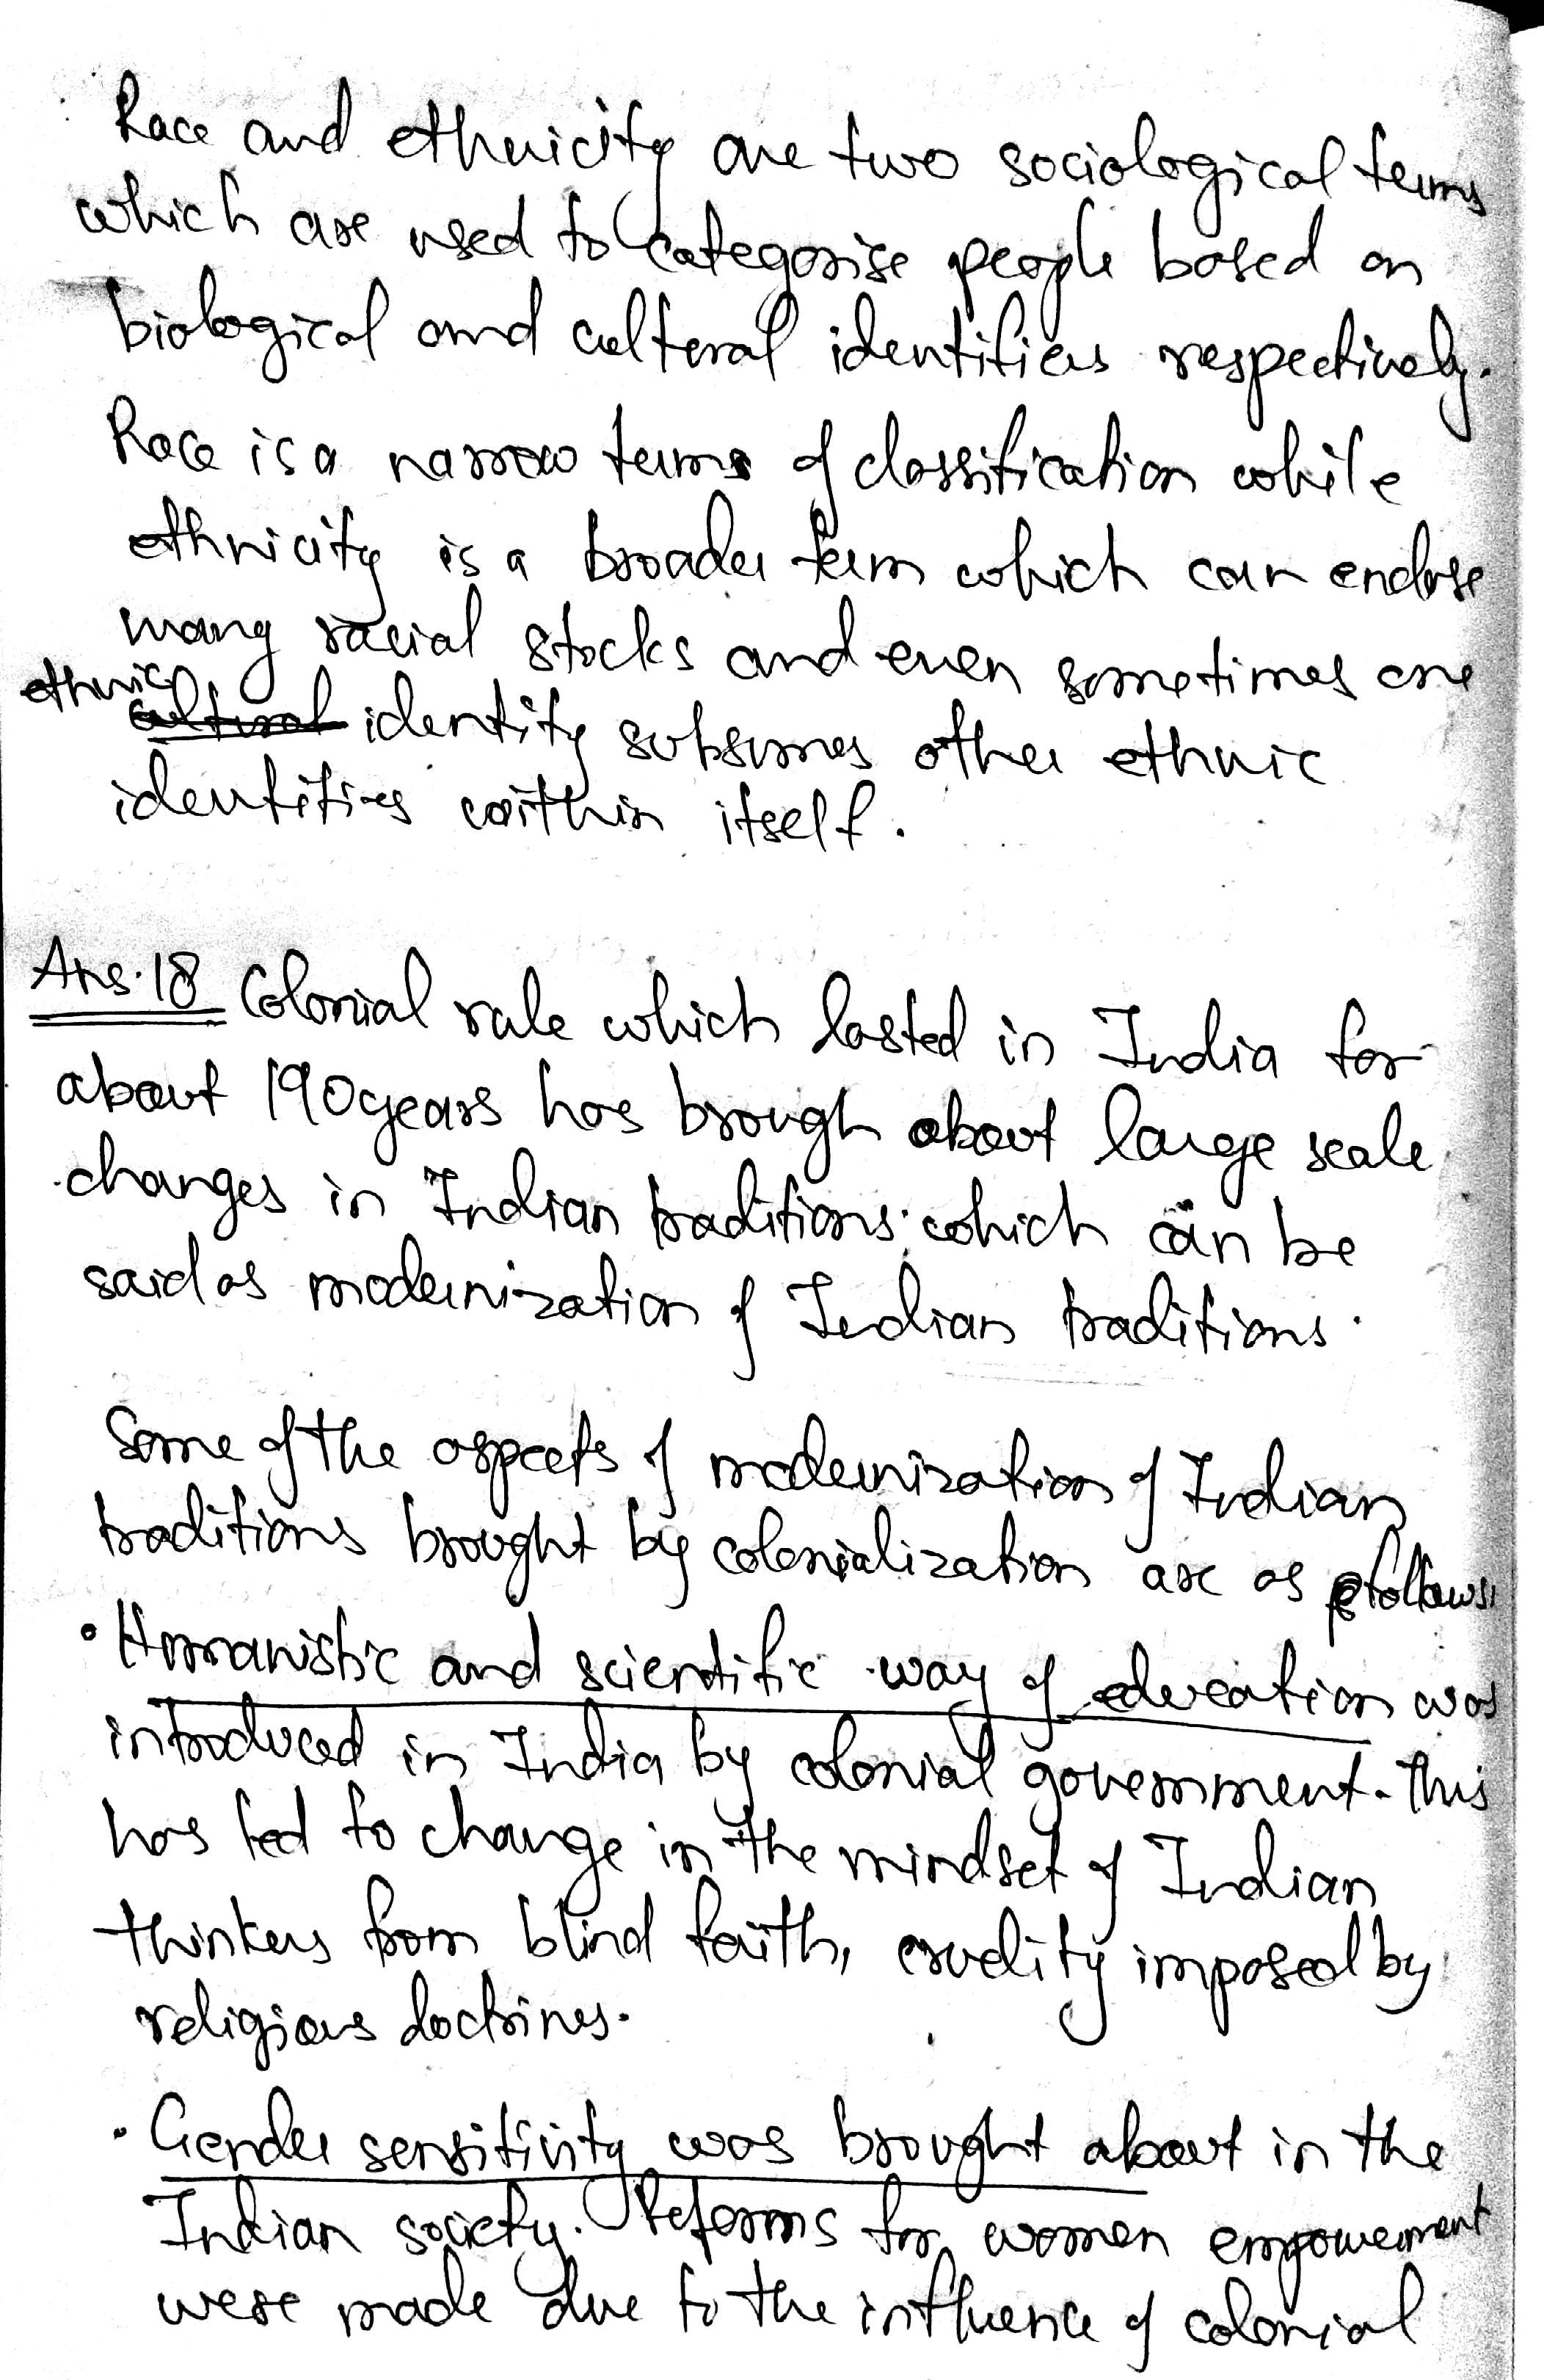 Race and ethnicity are two sociological terms
which are used to categorise people based on
biological and cultural identifiers respectively.
Race is a narrow term of classification while
ethnicity is a broader term which can enclose
many racial stocks and even sometimes one
ethnic
cultural identity subsumes other ethnic
identities within itself.
Ans. 18 Colonial rule which lasted in India for
about 190 years has brough about large scale
changes in Indian traditions which can be
said as modernization of Indian traditions.
Some of the aspects of modernization of Indian
traditions brought by colonialization are as follows:
• Humanistic and scientific way of education was
introduced in India by colonial government. This
has led to change in the mindset of Indian
thinkers from blind faith, cruelity imposed by
religious doctrines.
• Gender sensitivity was brought about in the
Indian society. Reforms for women empowerment
were made due to the influence of colonial